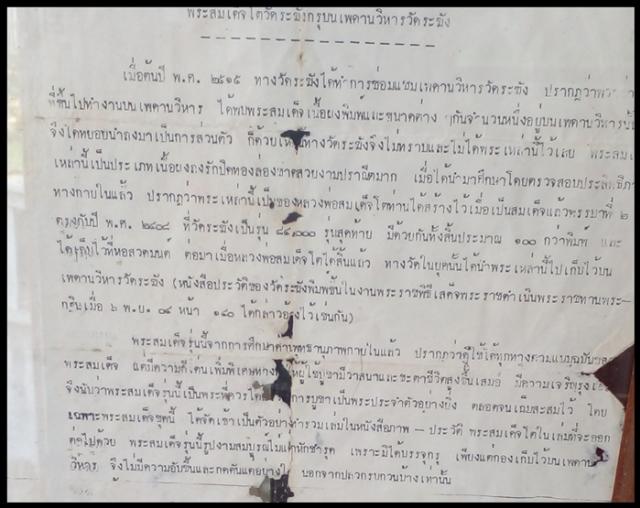 พระสมเด็จโตวัดระฆังกรุบนเพดานวิหารวัดระฆัง
เมื่อต้นปี พ.ศ. ๒๕๑๕ ทางวัดระฆังได้ทำการซ่อมแซมเพดานวิหารวัดระฆัง ปรากฏว่า
ที่ขึ้นไปทำงานบนเพดานวิหาร ได้พบพระสมเด็จเนื้อผงพิมพ์และขนาดต่าง ๆกันจำนวนหนึ่งอยู่บนเพดานวิหาร
จึงได้ทยอยนำลงมาเป็นการส่วนตัว ก็ด้วยเหตุนี้ทางวัดระฆังจึงไม่ทราบและไม่ได้พระเหล่านี้ไว้เลย พระสมเด็จ
เหล่านี้เป็นประเภทเนื้อผงลงรักปิดทองล่องชาดสวยงามปราณีตมาก เมื่อได้นำมาศึกษาโดยตรวจสอบประสิทธิภาพ
ทางภายในแล้ว ปรากฏว่าพระเหล่านี้เป็นของหลวงพ่อสมเด็จโตท่านได้สร้างไว้เมื่อเป็นสมเด็จแล้วพรรษาที่ ๒
ตรงกับปี พ.ศ. ๒๔๐๘ ที่วัดระฆังเป็นรุ่น ๘๔,๐๐๐ รุ่นสุดท้าย มีด้วยกันทั้งสิ้นประมาณ ๑๐๐ กว่าพิมพ์ และ
ได้เก็บไว้ที่หอสวดมนต์ ต่อมาเมื่อหลวงพ่อสมเด็จโตได้สิ้นแล้ว ทางวัดในยุคนั้นได้นำพระเหล่านี้ไปเก็บไว้บน
เพดานวิหารวัดระฆัง (หนังสือประวัติของวัดระฆังพิมพ์ขึ้นในงานพระราชพิธีเสด็จพระราชดำเนินพระราชทานพระ-
กฐินเมื่อ ๖ พ.ย. ๐๔ หน้า ๑๔๐ ได้กล่าวอ้างไว้เช่นกัน)
พระสมเด็จรุ่นนี้จากการศึกษาด้านพุทธานุภาพภายในแล้ว ปรากฏว่าใช้ได้ทุกทางตามแบบฉบับของ
พระสมเด็จ แต่มีความดีเด่นเพิ่มพิเศษทางให้ผู้ใช้บูชามีวาสนาและชะตาชีวิตสูงขึ้นเสมอ มีความเจริญรุ่งเรือง
จึงนับว่าพระสมเด็จรุ่นนี้เป็นพระที่ควรได้ การบูชาเป็นพระประจำตัวอย่างยิ่ง ตลอดจนเก็บสะสมไว้ โดย
เฉพาะพระสมเด็จชุดนี้ ได้จัดเข้าเป็นตัวอย่างทำรวมเล่มในหนังสือภาพ – ประวัติ พระสมเด็จโตในเล่มที่จะออก
ต่อไปด้วย พระสมเด็จรุ่นนี้รูปงามสมบูรณ์ไม่แตกหักชำรุด เพราะมิได้บรรจุกรุ เพียงแต่กองเก็บไว้บนเพดาน
วิหาร จึงไม่มีความอับชื้นและกดดันแต่อย่างใด นอกจากปลวกรบกวนบ้างเท่านั้น